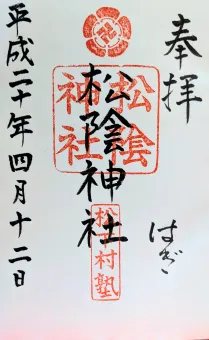 奉拝
はぎ
松陰神社
松陰神社
松下村塾
平成二十年四月十二日